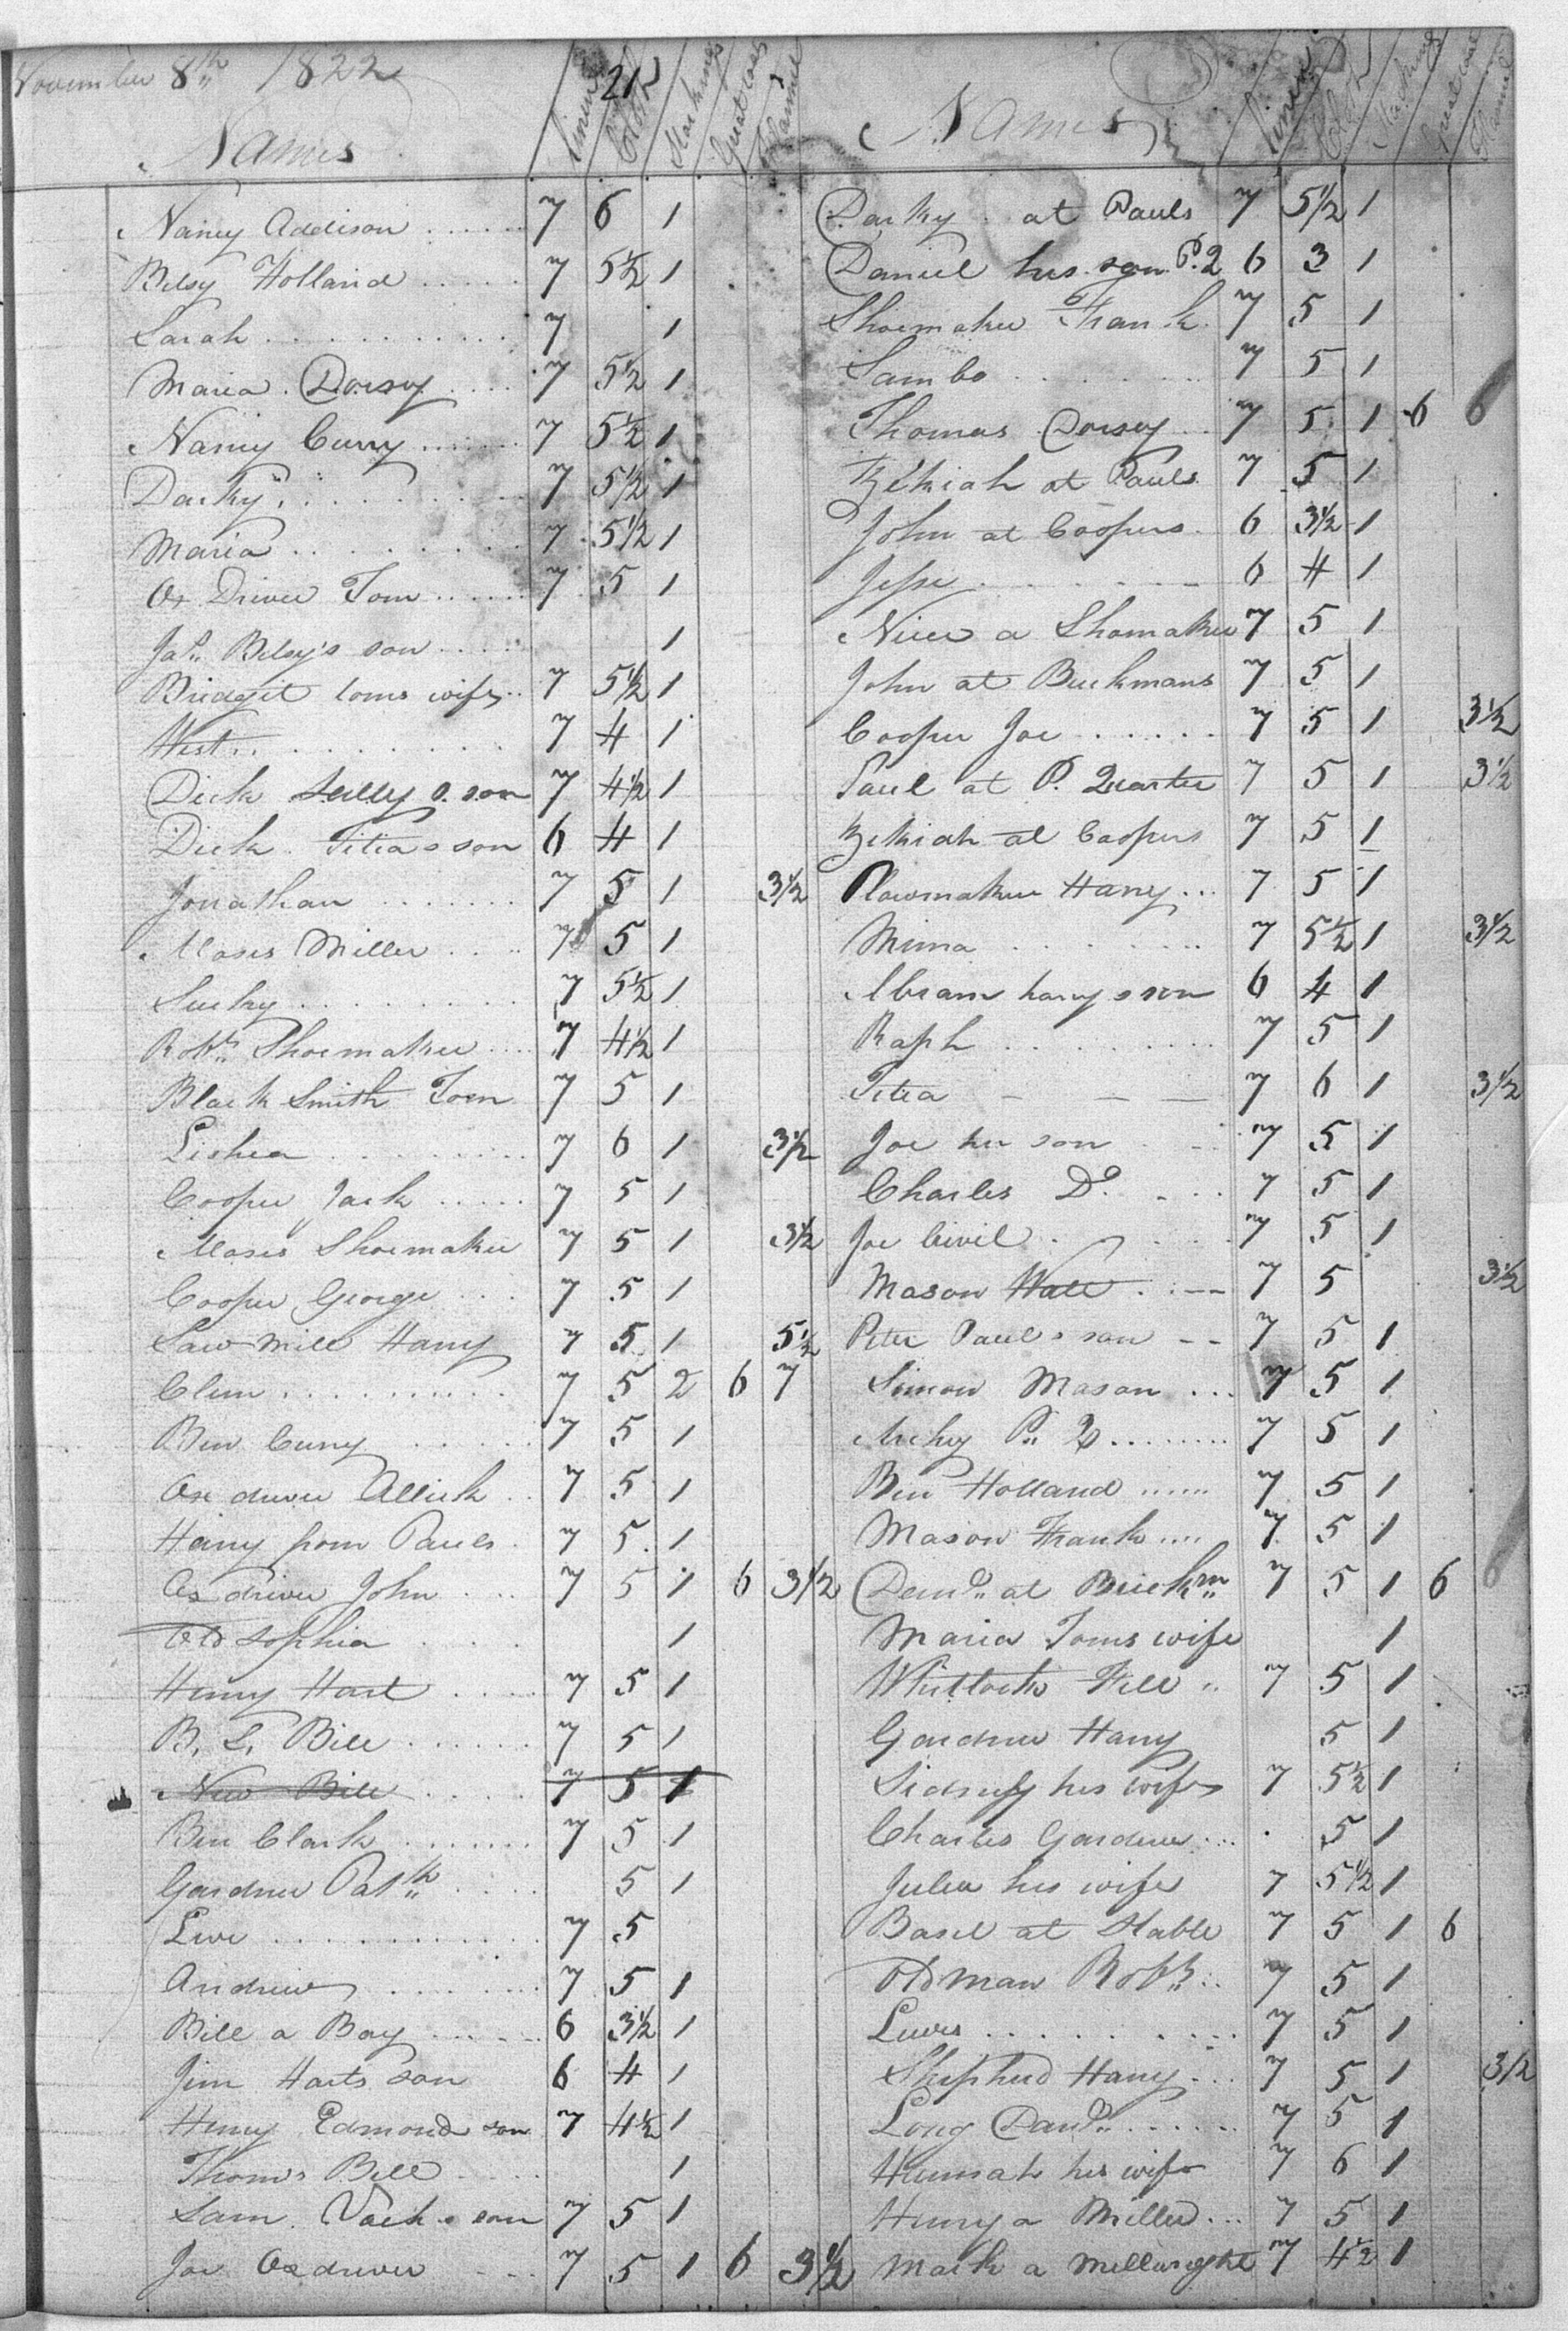 November 8th 1822
21
Names Linen Cloth Stockings Great coats Flannel
Nancy Addison 7 6 1
Betsy Holland 7 5½ 1
Sarah 7 1
Maria Dorsey 7 5½ 1
Nancy Curry 7 5½ 1
Darky 7 5½ 1
Maria 7 5½ 1
Ox Driver Tom 7 5 1
Jas. Betsy's son 1
Bridgit toms wife 7 5½ 1
West 7 4 1
Dick Sallys son 7 4½ 1
Dick Titias son 6 4 1
Jonathan 7 5 1 3½
Moses Miller 7 5 1
Sucky 7 5½ 1
Robt. Shoemaker 7 4½ 1
Black Smith Tom 7 5 1
Lishea 7 6 1 3½
Cooper Jack 7 5 1
Moses Shoemaker 7 5 1 3½
Cooper George 7 5 1
Saw Mill Harry 7 5 1 5½
Clem 7 5 2 6 7
Ben Curry 7 5 1
Ox driver Allick 7 5 1
Harry from Pauls 7 5 1
Ox driver John 7 5 1 6 3½
Old Sophia 1
Henry Hart 7 5 1
B. S. Bill 7 5 1
New Bill 7 5 1
Ben Clark 7 5 1
Gardner Patk 5 1
Live 7 5
Andrew 7 5 1
Bill a Boy 6 3½ 1
Jim Harts son 6 4 1
Henry Edmond son 7 4½ 1
Thoms Bill 1
Sam Jacks son 7 5 1
Joe Oxdriver 7 5 1 6 3½
Names Linen Cloth Stockings Great coat Flannel
Darky at Pauls 7 5½ 1
Daniel his son P. 2 6 3 1
Shoemaker Frank 7 5 1
Sambo 7 5 1
Thomas Dorsey 7 5 1 6 6
Hezekiah at Pauls 7 5 1
John at Coopers 6 3½ 1
Jesse 6 4 1
Nicer a Shomaker 7 5 1
John at Buckmans 7 5 1
Cooper Joe 7 5 1 3½
Paul at P. Quarter 7 5 1 3½
Hezekiah at Coopers 7 5 1
Plowmaker Harry 7 5 1
Mima 7 5½ 1 3½
Abram harrys son 6 4 1
Raph 7 5 1
Titia 7 6 1 3½
Joe her son 7 5 1
Charles Do. 7 5 1
Joe Civil 7 5 1
Mason Walt 7 5 3½
Peter Pauls son 7 5 1
Simon Mason 7 5 1
Archy P. 2 7 5 1
Ben Holland 7 5 1
Mason Frank 7 5 1
at Brickm 7 5 1 6 6
Maria Toms wife 1
Whitlocks Will 7 5 1
Gardner Harry 5 1
Sidney his wife 7 5½ 1
Charles Gardner 5 1
Julia his wife 7 5½ 1
Basil at Stable 7 5 1 6
Old man Robt. 7 5 1
Lewis 7 5 1
Shepherd Harry 7 5 1 3½
Long Danl. 7 5 1
Hannah his wife 7 6 1
Henry a Miller 7 5 1
Mark a Millwright 7 4½ 1